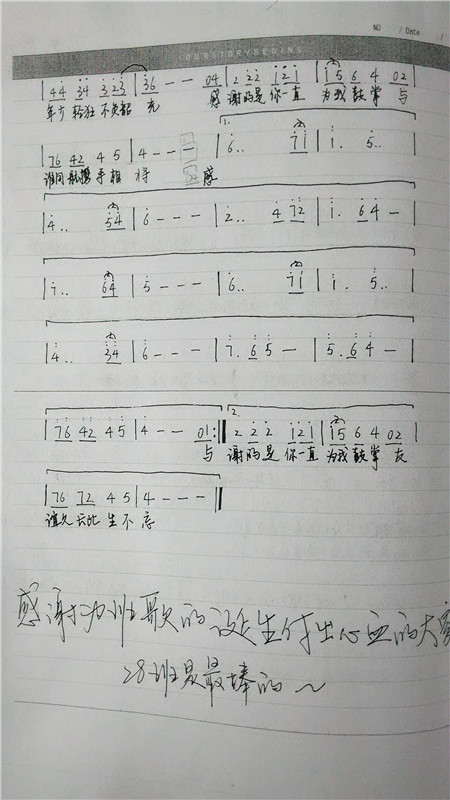 NO / Date /
YOURSTORYBEGINS
44 34 323 | 36 - - 04 | 2 22 121 | 15 6 4 02 |
年少轻狂 不负韶光 感 谢的是你一直 为我鼓掌 与
1.
76 42 4 5 | 4 - - - | 6.. 71 | 1. 5.. |
手相 感
4.. 54 | 6 - - - | 2.. 4 72 | 1. 64 - |
7.. 64 | 5 - - - | 6.. 71 | 1. 5.. |
4.. 34 | 6 - - - | 7. 65 - | 5. 64 - |
2.
76 42 4 5 | 4 - - 01 :‖ 2 22 121 | 15 6 4 02 |
与 谢的是 你一直 为我鼓掌 友
76 72 4 5 | 4 - - - ‖
谊 生不忘
感谢为班歌的诞生付出心血的大家
28班是最棒的~